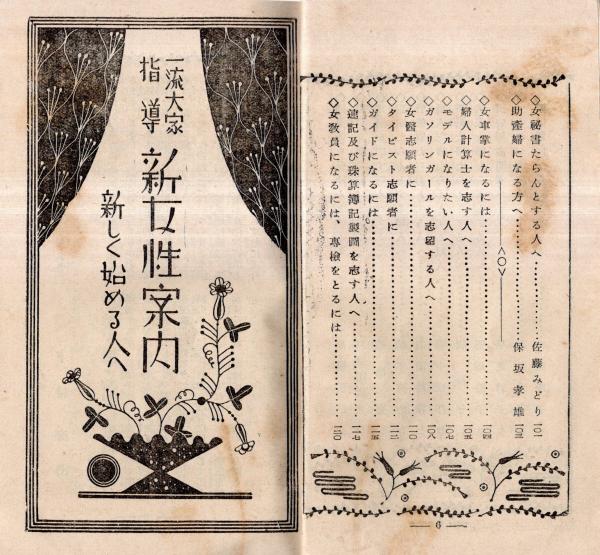 ◇女祕書たらんとする人へ……佐藤みどり 一〇一
◇助產婦になる方へ……保坂孝雄 一〇三
―〈〇〉―
◇女車掌になるには……一〇四
◇婦人計算士を志す人へ……一〇五
◇モデルになりたい人へ……一〇七
◇ガソリンガールを志紹する人へ……一〇八
◇女醫志願者に……一一〇
◇タイピスト志願者に……一一二
◇ガイドになるには……一一五
◇速記及び珠算簿記製圖を志す人へ……一一七
◇女敎員になるには、專檢をとるには……一二〇
― 6 ―
一流大家
指導
新女性案内
新しく始める人へ